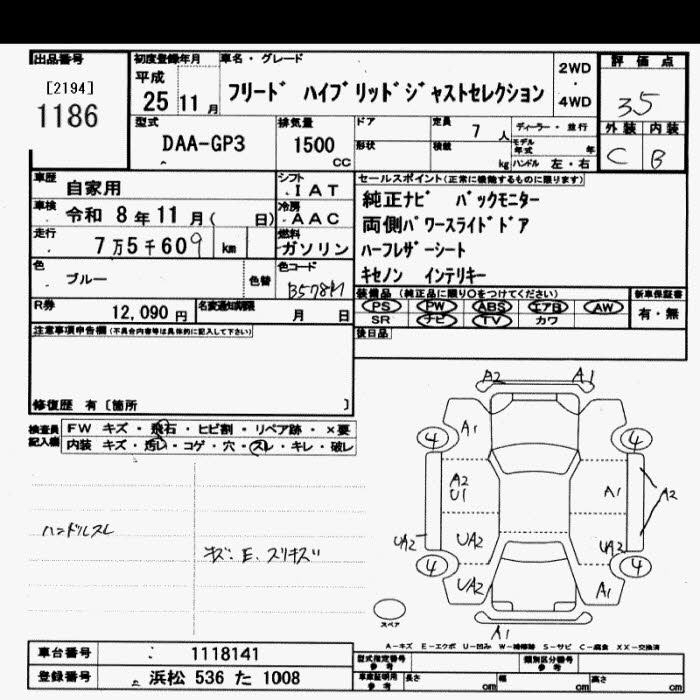 出品番号
[2194]
1186
初度登録年月
平成
25 11 月
車名・グレード
フリード ハイブリッドジャストセレクション
2WD
・
4WD
評価点
3.5
外装 内装
C B
型式
DAA-GP3
排気量
1500
cc
ドア
形状
定員
7 人
積載
kg
ディーラー・並行
モデル年式 年
ハンドル 左・右
車歴
自家用
車検
令和 8年 11月( 日)
走行
7万5千609 km
シフト
IAT
冷房
AAC
燃料
ガソリン
色
ブルー
色替
色コード
B578M
R券
12,090 円
名変通知期限
月 日
セールスポイント(正常に機能するものに限ります)
純正ナビ バックモニター
両側パワースライドドア
ハーフレザーシート
キセノン インテリキー
装備品(純正品に限り○をつけてください)
PS PW ABS エアB AW
SR ナビ TV カワ
新車保証書
有・無
後日品
注意事項申告欄(不具合内容等は具体的に記入して下さい)
修復歴 有〔箇所 〕
検査員
記入欄
FW キズ・飛石・ヒビ割・リペア跡・×要
内装 キズ・汚れ・コゲ・穴・スレ・キレ・破レ
ハンドルスレ
キズ・E・スリキズ
A2 A1
4 A1 4
A2
U1
A1 A2
UA2 UA2 UA2
4 UA2 A1 4
A1
スペア
A-キズ E-エクボ U-凹み W-補修跡 S-サビ C-腐食 XX-交換済
車台番号
1118141
登録番号
浜松 536 た 1008
型式指定番号
参考
類別区分番号
参考
車庫証明用
参考
長さ cm 幅 cm 高さ cm